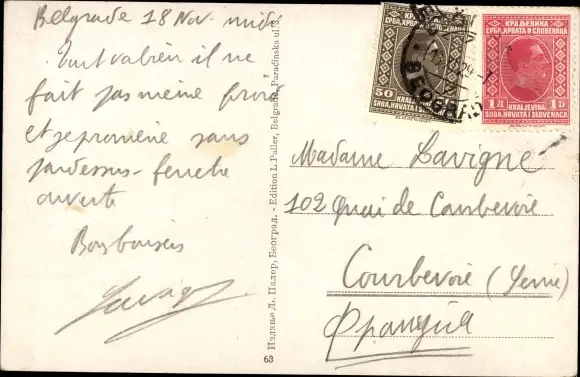 Belgrade 18 Nov. midi
Tout va bien il ne
fait pas même froid
et je promène sans
pardessus - fenetre
ouverte
Bons baisers
Madame Lavigne
102 Quai de Courbevoie
Courbevoie (Seine)
Француја
Издање Љ. Палер, Београд. - Edition L. Paller, Belgrade, Paraćinska ul.
63
КРАЉЕВИНА
СРБА, ХРВАТА И СЛОВЕНАЦА
50
KRALJEVINA
SRBA, HRVATA I SLOVENACA
КРАЉЕВИНА
СРБА, ХРВАТА И СЛОВЕНАЦА
1Д 1D
KRALJEVINA
SRBA, HRVATA I SLOVENACA
BEOGRAD